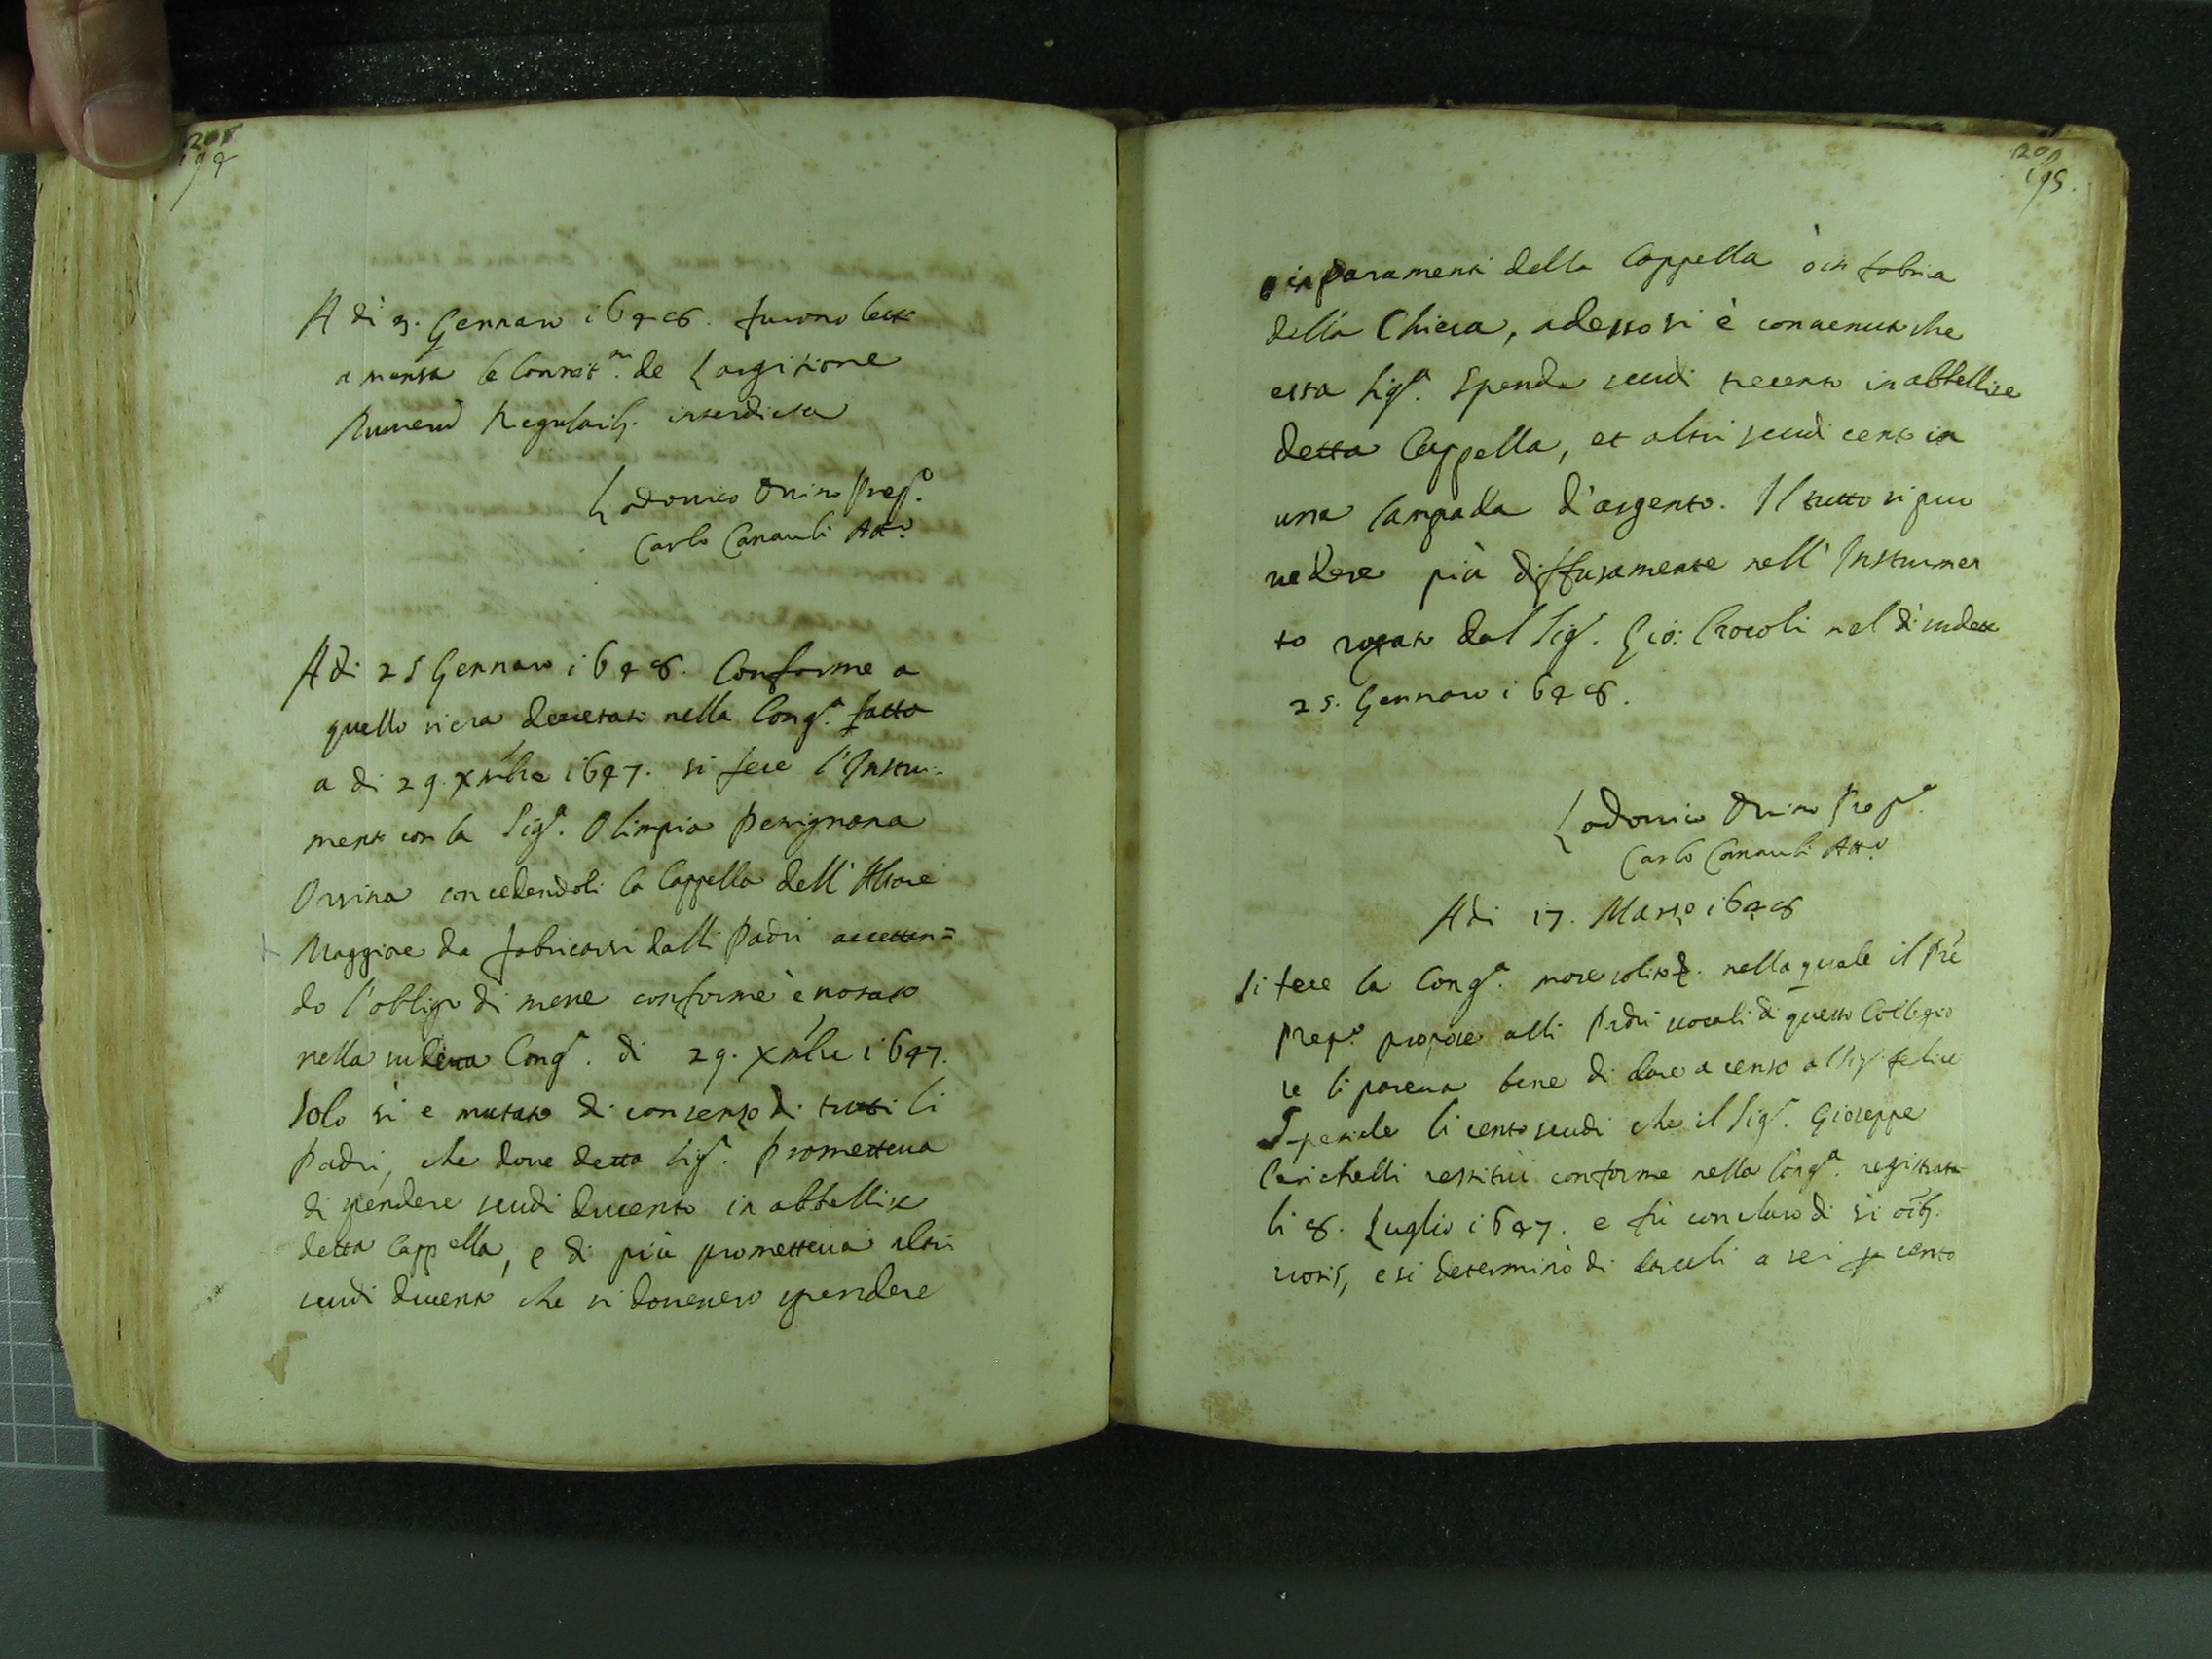 208
194
A dì 3. Gennaro 1648. furono lette
a mensa le Constit.ni de Largitione
Munerũ Regularib. interdicta
Lodovico Orsino Prep.o
Carlo Canauli Att.o
A di 25 Gennaro 1648. Conforme a
quello si era decretato nella Cong.a fatta
a di 29. Xmbre 1647. si fece l'Instru-
mento con la Sig.a Olimpia Perignana
Orsina concedendoli la Cappella dell'Altare
Maggiore da fabricarsi dalli Padri accettan=
do l'obligo di messe conforme è notato
nella sudetta Cong.a di 29. Xmbre 1647.
Solo si è mutato di consenso di tutti li
Padri, che dove detta Sig.a prometteva
di spendere scudi ducento in abbellire
detta Cappella, e di più prometteva altri
scudi ducento che si dovevero spendere
209
195.
o in paramenti della Cappella ò in fabrica
della Chiesa, adesso si è convenuto che
essa Sig.a Spenda scudi trecento in abbellire
detta Cappella, et altri scudi cento in
una lampada d'argento. Il tutto si puo
vedere più diffusamente nell'Instrumen
to rogato dal Sig.r Gio: Crocoli nel dì sudetto
25. Gennaro 1648.
Lodovico Orsino Prep.o
Carlo Canauli Att.o
A di 17. Marzo 1648
Si fece la Cong.a more solito &. nella quale il Prè
Prep.o propose alli Padri vocali di questo Collegio
se li pareva bene di dare a censo al Sig.r felice
Speciale li cento scudi che il Sig.r Gioseppe
Cerichelli restituì conforme nella Cong.a registrata
li 8. Luglio 1647. e fù concluso di sì oib.
votis, e si determinò di darceli a sei p cento